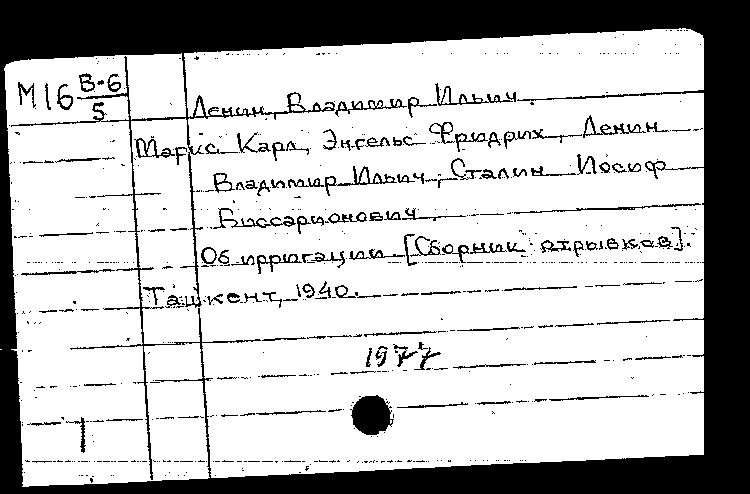 М16 В-6
5
Ленин, Владимир Ильич.
Маркс Карл, Энгельс Фридрих, Ленин
Владимир Ильич, Сталин Иосиф
Виссарионович.
Об ирригации [Сборник отрывков].
Ташкент, 1940.
1977
1